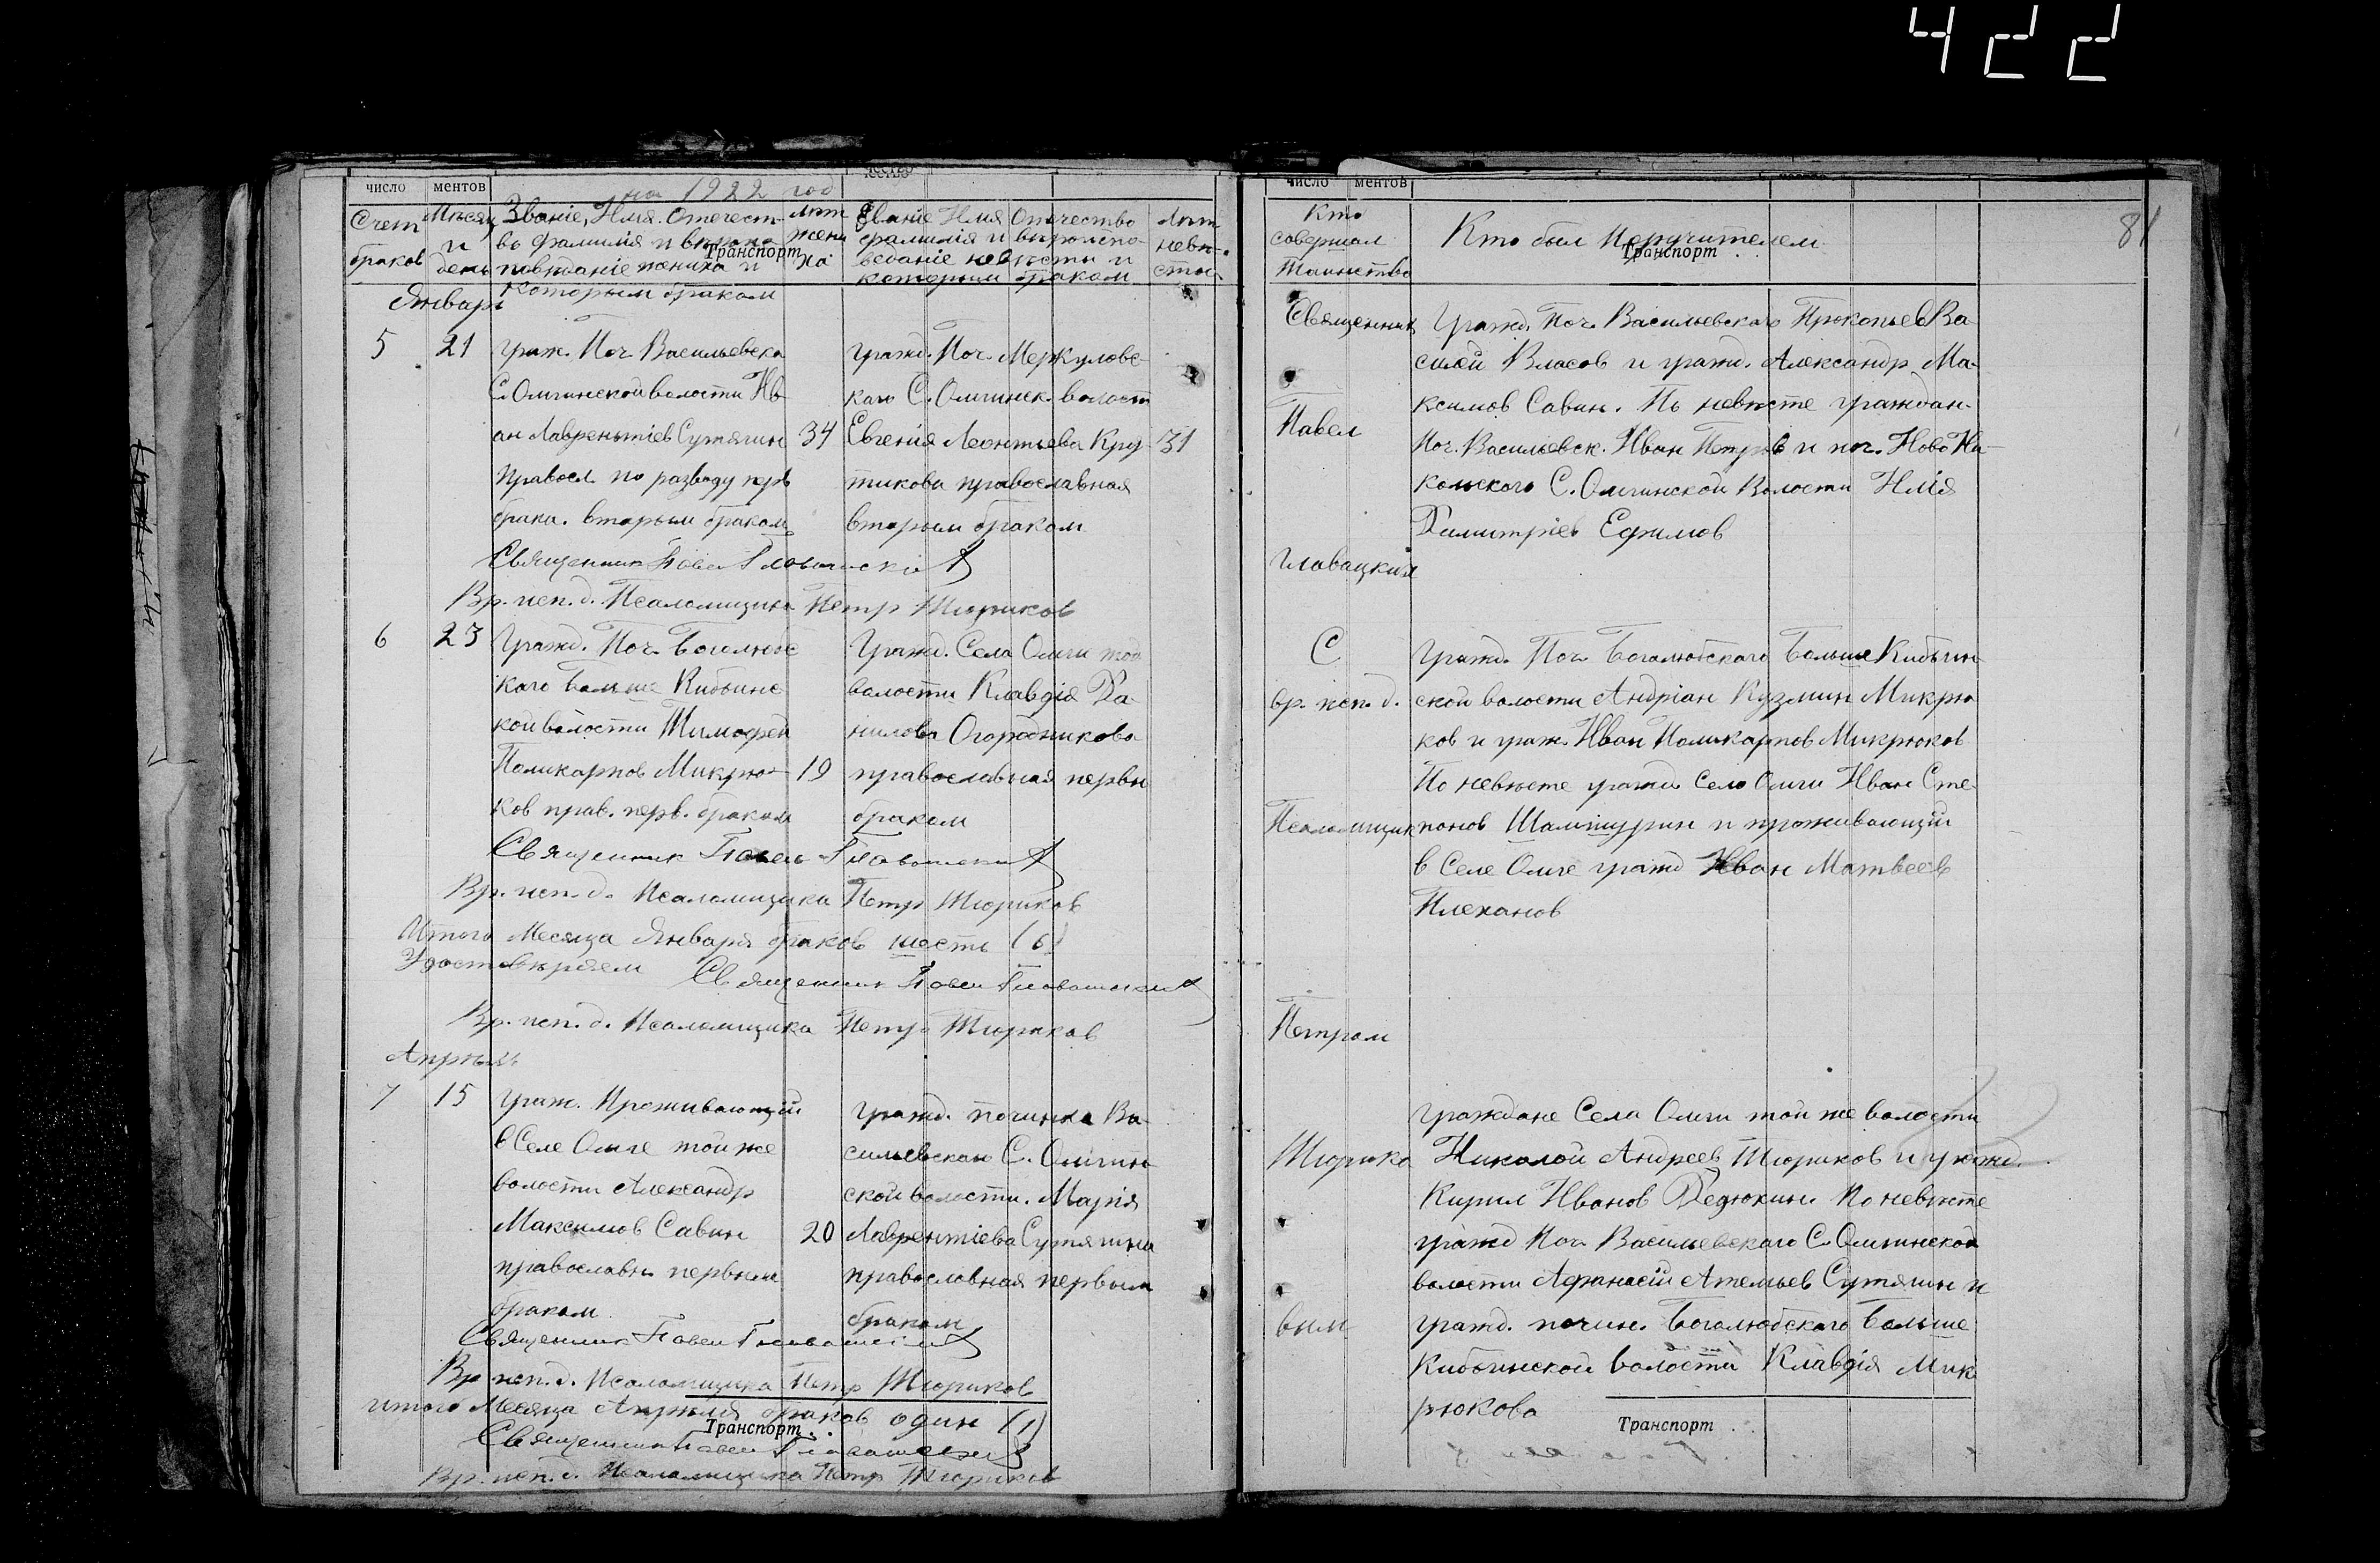 422
число ментов чество
на 1922 год
Счет браков
Мѣсяц и день
Званіе, Имя. Отечест-
во фамилія и вѣроис
повѣданіе жениха и
которым браком
Лѣт жени ха
Званіе Имя Отечество
фамилія и вѣроиспо-
веданіе невѣсты и
которым браком
Лѣт невѣ-
сты
Транспорт
Январь
5 21
граж. Поч Васильевска
С. Омгинской волости Ив-
ан Лаврентіев Сутягин 34
правосл. по разводу перв
брака. вторым браком
гражд. Поч. Меркуловс-
каго С. Омгинск. волост
Евгенія Леонтьева Кру- 31
тикова православная
вторым браком
Священник Павел Главацкій
Вр. исп. д. Псаломщика Петр Тюриков
6 23
Гражд. Поч. Боголюбс
каго Больше Кибьинс
кой волости Тимофей
Поликарпов Микрю- 19
ков прав. перв. браком
Гражд. Села Омги той
волости Клавдія Да-
нилова Огородникова
православная первы
браком
Священник Павел Главацкий
Вр. исп. д. Псаломщика Петр Тюриков
Итого Месяца Января браков шесть (6)
Удостовѣряем Священник Павел Главацкий
Вр. исп. д. Псаломщика Петр Тюриков
Апрѣль
7 15
граж. Проживающій
в Селе Омге той же
волости Александр
Максимов Савин 20
православн. первым
браком
гражд. починка Ва-
сильевскаго С. Омгин-
ской волости. Марія
Лаврентіева Сутягина
православная первым
браком
Священник Павел Главацкій
Вр исп. д. Псаломщика Петр Тюриков
итого Месяца Апрѣля браков один (1)
Транспорт
Священник Павел Главацкий
Вр. исп. д. Псаломщика Петр Тюриков
число ментов
81
Кто
совершал
Таинство
Кто был Поручителем
Транспорт
Священник
Павел
Главацкий
Гражд. Поч. Васильевскаго Прокопьев Ва-
силий Власов и гражд. Александр Ма-
ксимов Савин. По невѣсте граждан-
Поч. Васильевск. Иван Петров и поч. Ново Ни-
кольского С. Омгинской Волости Илія
Димитріев Ефимов
С
вр. исп. д.
Псаломщик
Петром
Тюрико
вым
гражд. Поч. Боголюбскаго Больше Кибьин-
ской волости Андріан Кузмин Микрю
ков и граж. Иван Поликарпов Микрюков
По невѣсте гражд. Села Омги Иван Сте-
панов Шамшурин и проживающій
в Селе Омге гражд Иван Матвеев
Плеханов
граждане Села Омги той же волости
Николой Андреев Тюриков и гражд.
Кирил Иванов Дедюхин. По невѣсте
гражд Поч. Васильевскаго С. Омгинской
волости Афанасій Атемьев Сутягин и
гражд. почин. Боголюбского Больше
Кибьинской волости Клавдія Мик
рюкова
Транспорт